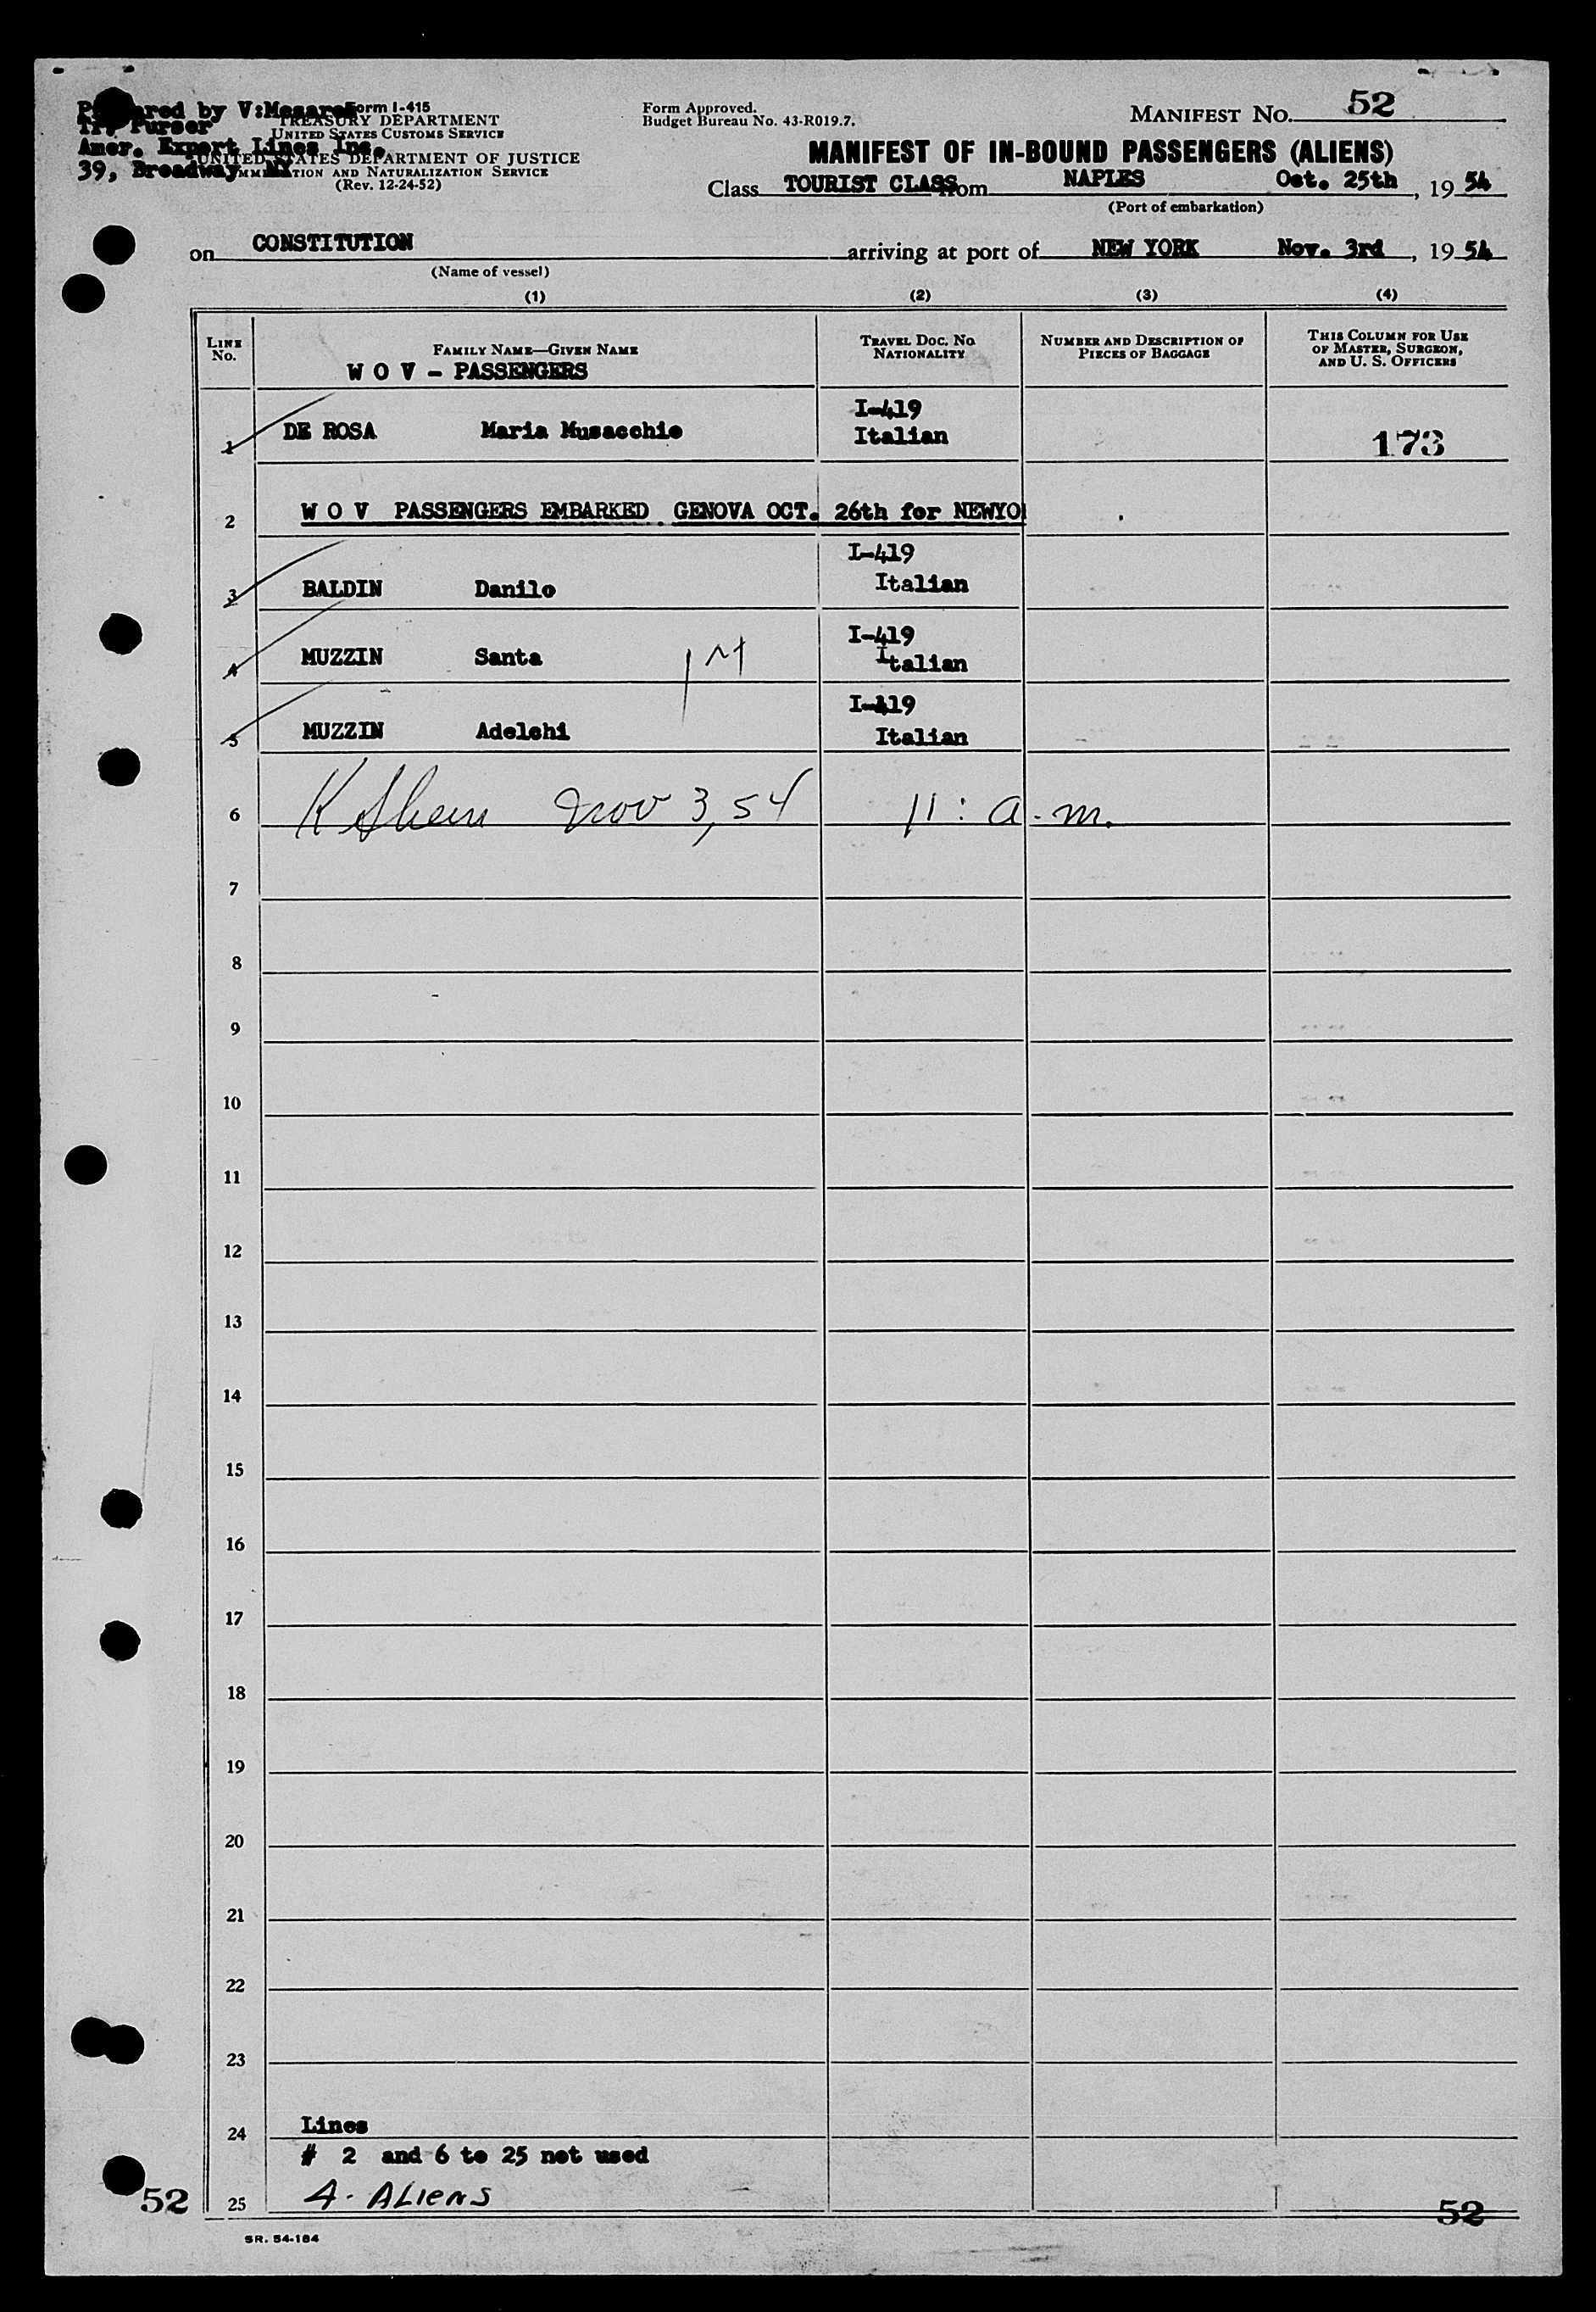 Prepared by V:Mesaros
Form I-415
TREASURY DEPARTMENT
Tr, Purser
UNITED STATES CUSTOMS SERVICE
Amer. Export Lines Inc.
UNITED STATES DEPARTMENT OF JUSTICE
39, Broadway NY
IMMIGRATION AND NATURALIZATION SERVICE
(Rev. 12-24-52)
Form Approved.
Budget Bureau No. 43-R019.7.
MANIFEST NO. 52
MANIFEST OF IN-BOUND PASSENGERS (ALIENS)
Class TOURIST CLASS from NAPLES Oct. 25th, 19 54
(Port of embarkation)
on CONSTITUTION arriving at port of NEW YORK Nov. 3rd, 19 54
(Name of vessel)
(1) (2) (3) (4)
LINE NO.
FAMILY NAME—GIVEN NAME
W O V - PASSENGERS
TRAVEL DOC. NO.
NATIONALITY
NUMBER AND DESCRIPTION OF
PIECES OF BAGGAGE
THIS COLUMN FOR USE
OF MASTER, SURGEON,
AND U. S. OFFICERS
1 DE ROSA Maria Musacchio I-419 Italian 173
2 W O V PASSENGERS EMBARKED GENOVA OCT. 26th for NEWYO
3 BALDIN Danilo I-419 Italian
4 MUZZIN Santa I-419 Italian
5 MUZZIN Adelchi I-419 Italian
6 Nov 3, 54 11: a.m.
7
8
9
10
11
12
13
14
15
16
17
18
19
20
21
22
23
24 Lines
# 2 and 6 to 25 not used
25 4. ALIENS
52 52
SR. 54-184